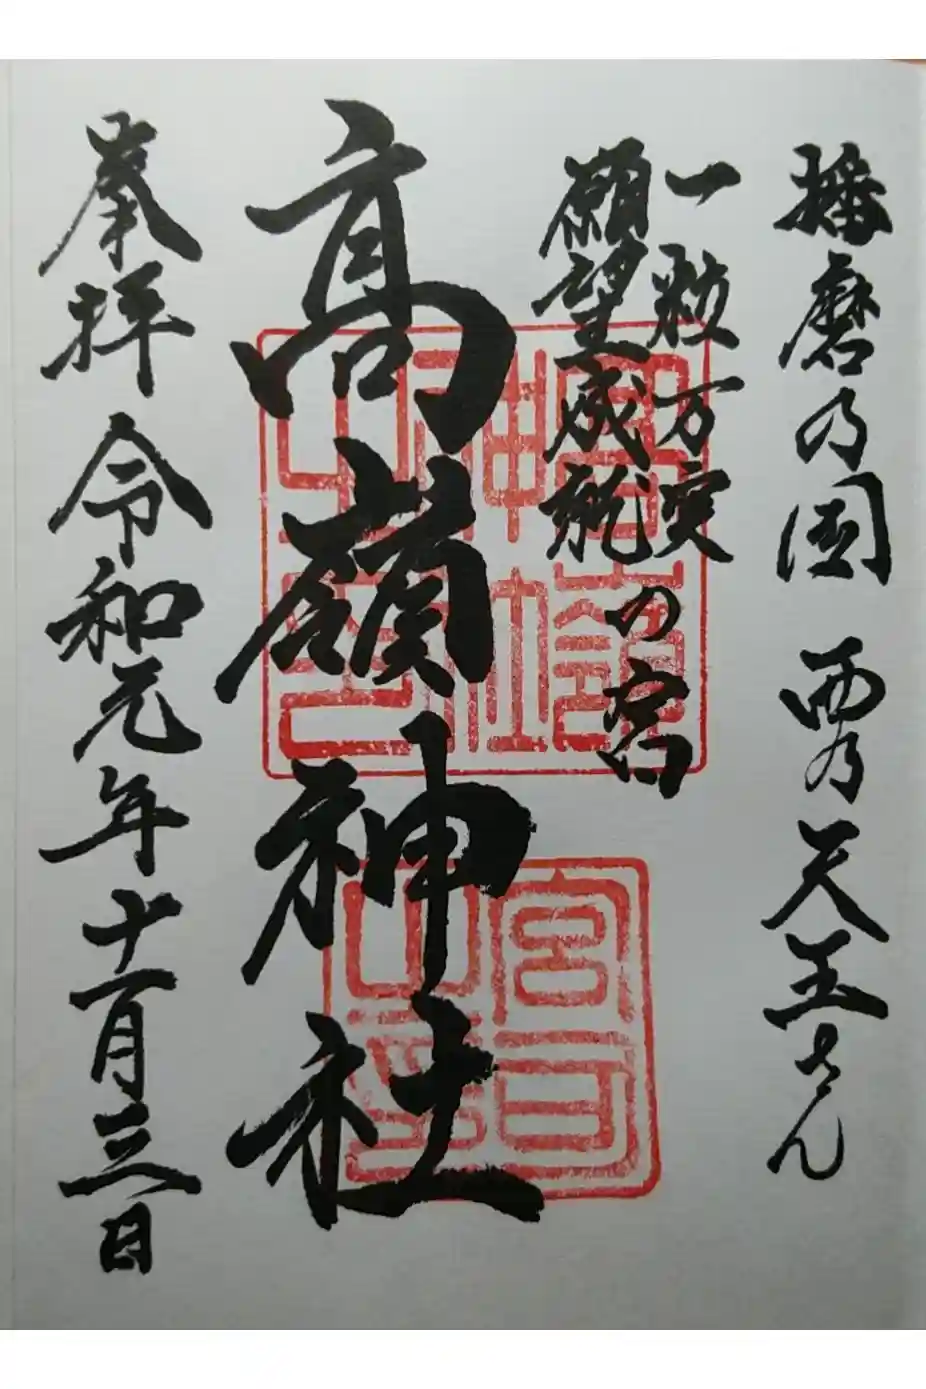 播磨乃國 西乃天王さん
一粒万実
願望成就の宮
高嶺神社
奉拝 令和元年十一月三日
高嶺
神社
之印
宮司
之印